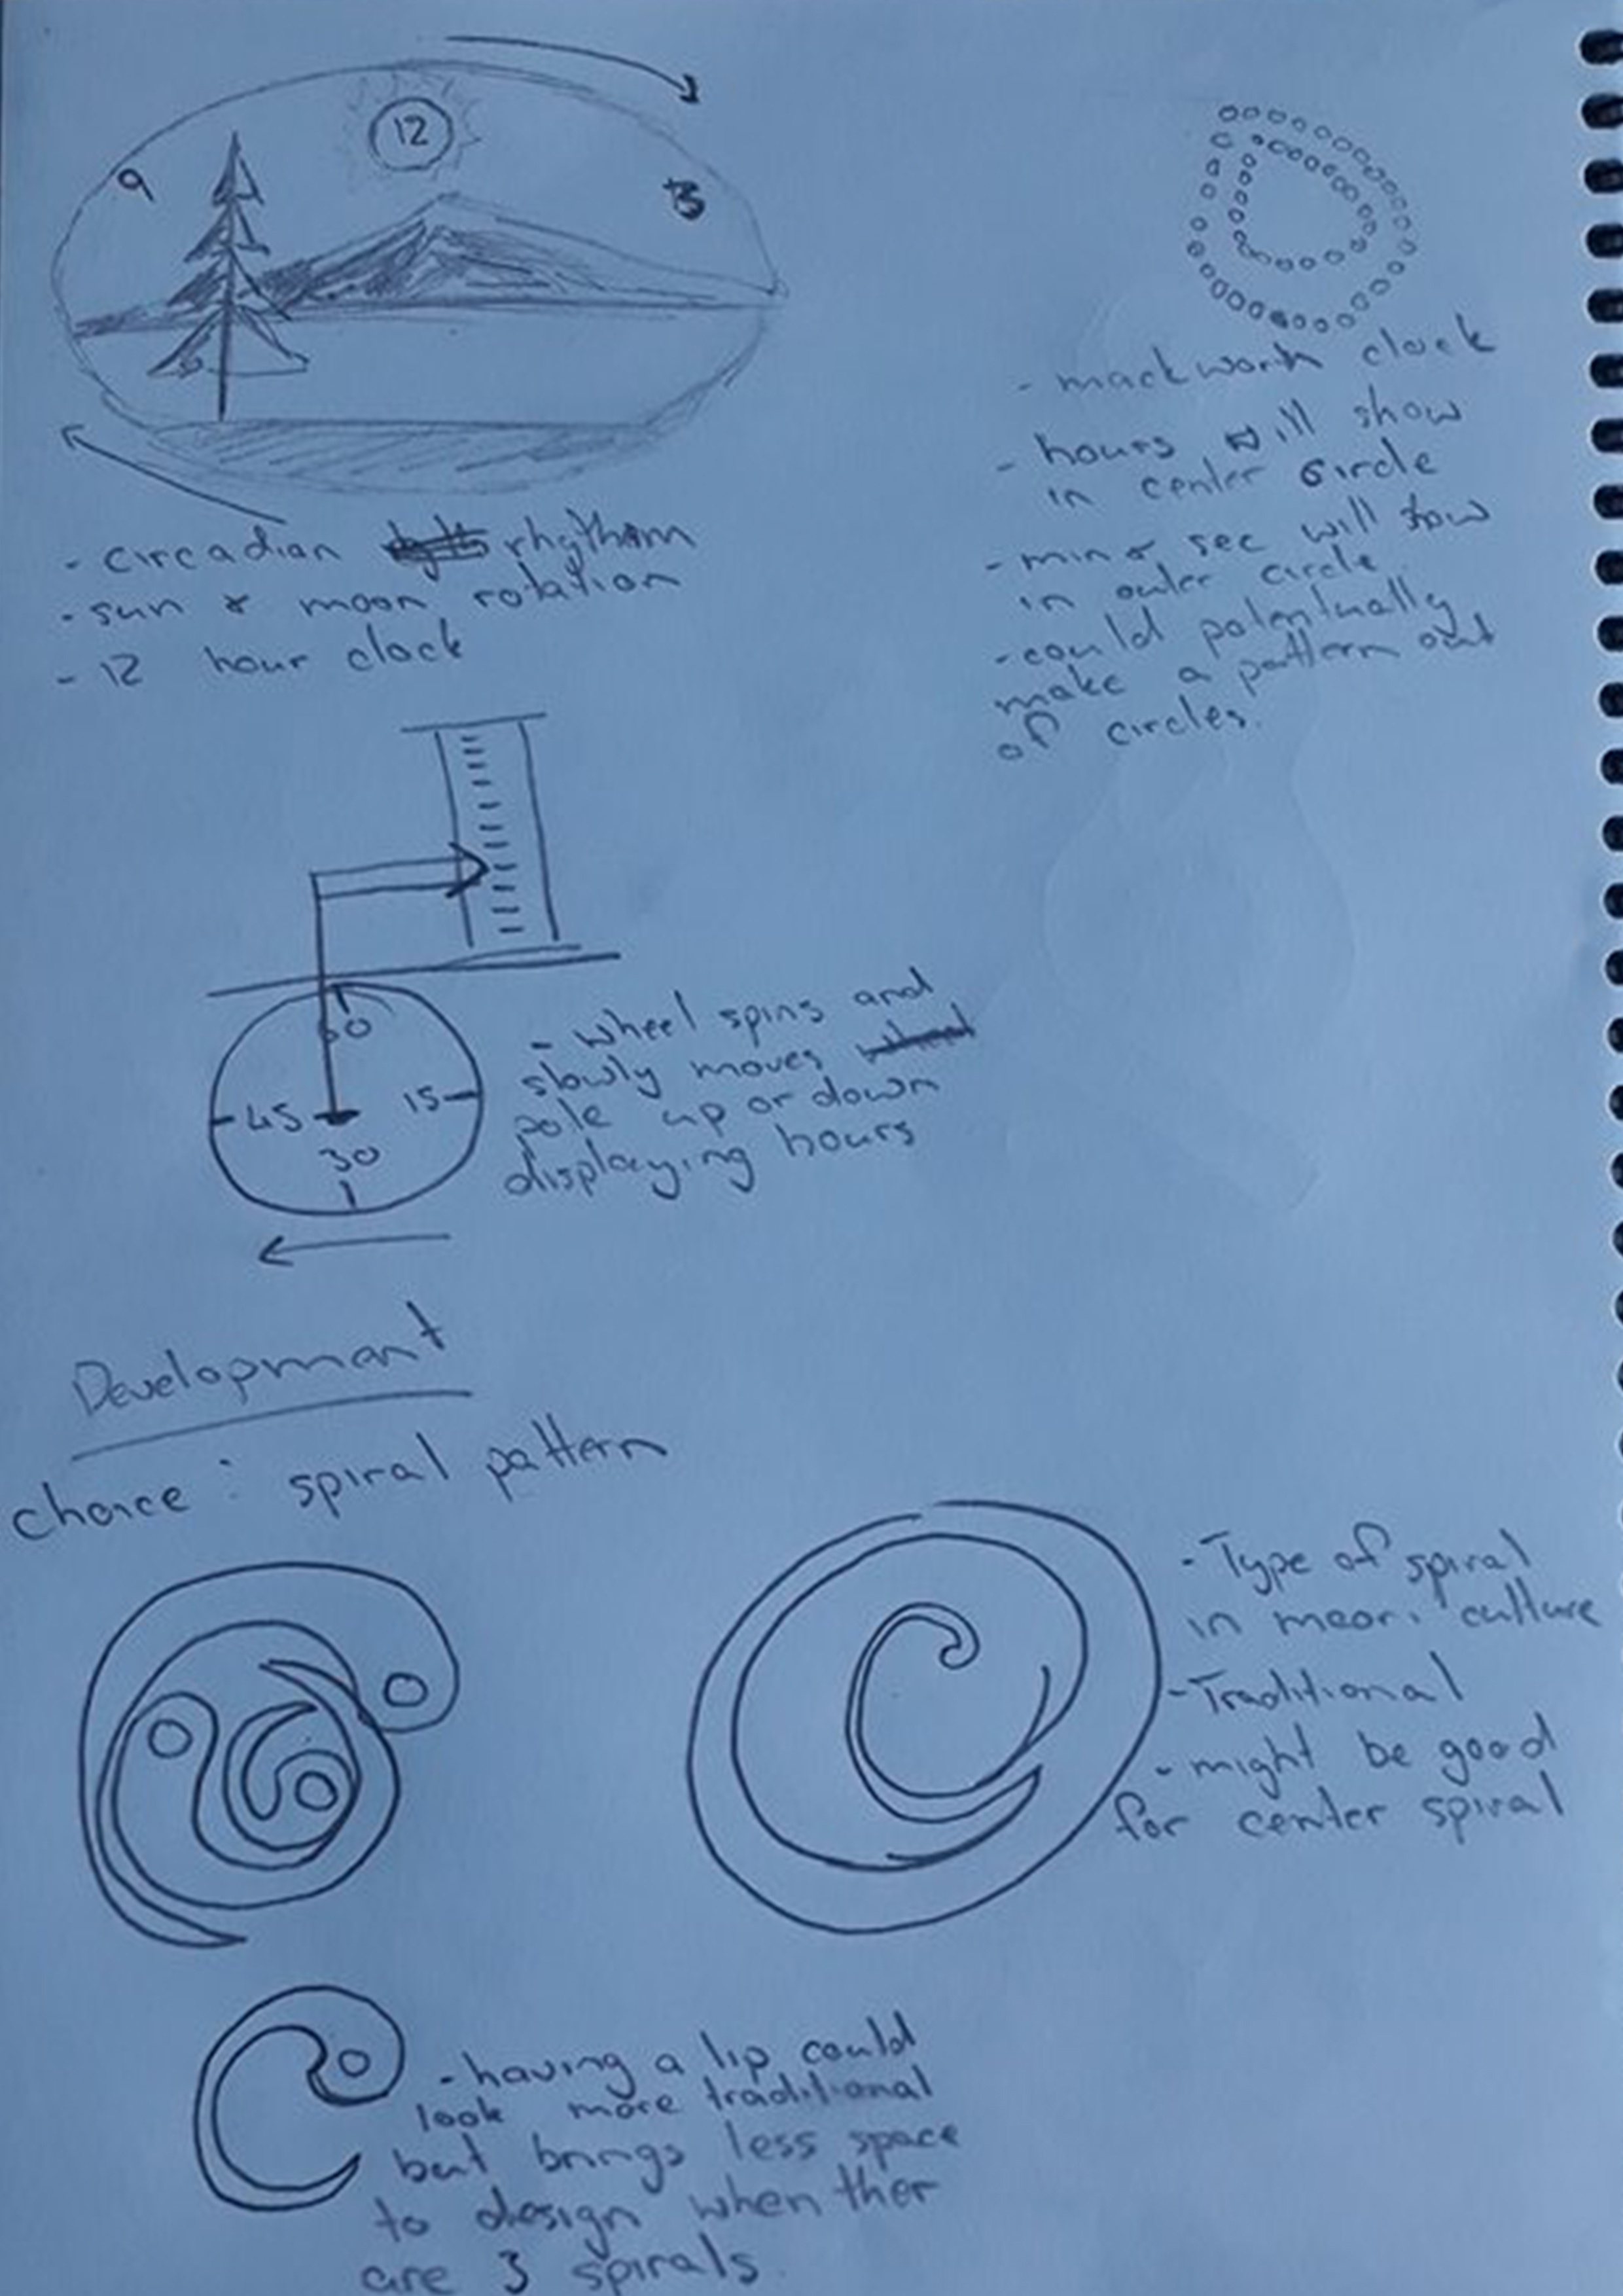 12
9
3
- circadian rhythm
- sun & moon rotation
- 12 hour clock
- mackworth clock
- hours will show
in center circle
- min & sec will show
in outer circle
- could potentually
make a pattern out
of circles.
60
45
15
30
- wheel spins and
slowly moves
pole up or down
displaying hours
Development
choice : spiral pattern
- Type of spiral
in meori culture
- Traditional
- might be good
for center spiral
- having a lip could
look more traditional
but brings less space
to design when ther
are 3 spirals.